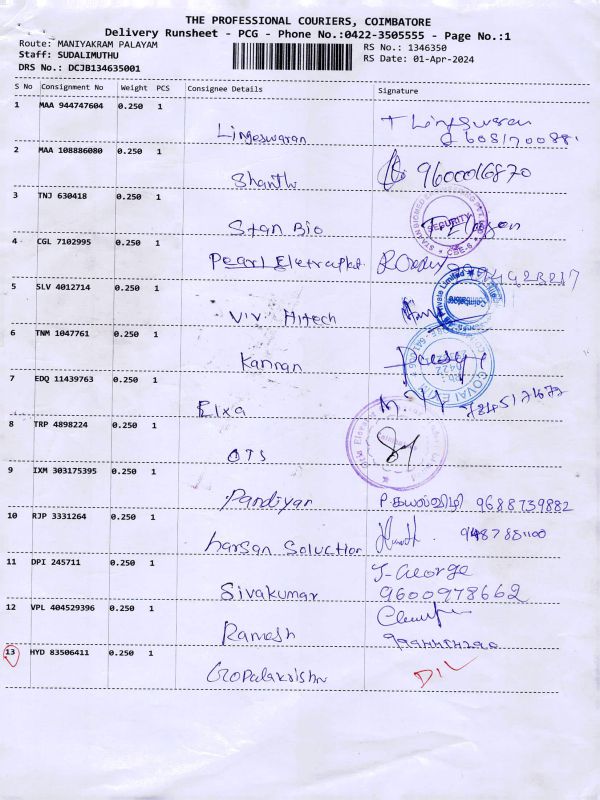 THE PROFESSIONAL COURIERS, COIMBATORE
Delivery Runsheet - PCG - Phone No.:0422-3505555 - Page No.:1
Route: MANIYAKRAM PALAYAM
RS No.: 1346350
Staff: SUDALIMUTHU
RS Date: 01-Apr-2024
DRS No.: DCJB134635001
S No Consignment No Weight PCS Consignee Details Signature
1 MAA 944747604 0.250 1 Lingeswaran T Lingeswaran
2 MAA 108886080 0.250 1 Shanthi 9600016870
3 TNJ 630418 0.250 1 Stan Bio SECURITY
4 CGL 7102995 0.250 1 Pearl
5 SLV 4012714 0.250 1 V.V. Hitech Coimbatore
6 TNM 1047761 0.250 1 Kannan
7 EDQ 11439763 0.250 1 Elxa
8 TRP 4898224 0.250 1 OTS
9 IXM 303175395 0.250 1 Pandiyar P.கயல்விழி 9688739882
10 RJP 3331264 0.250 1 harsan Soluction
11 DPI 245711 0.250 1 Sivakumar J-George
9600978662
12 VPL 404529396 0.250 1 Ramesh
13 HYD 83506411 0.250 1 Gopalakrishn DIL